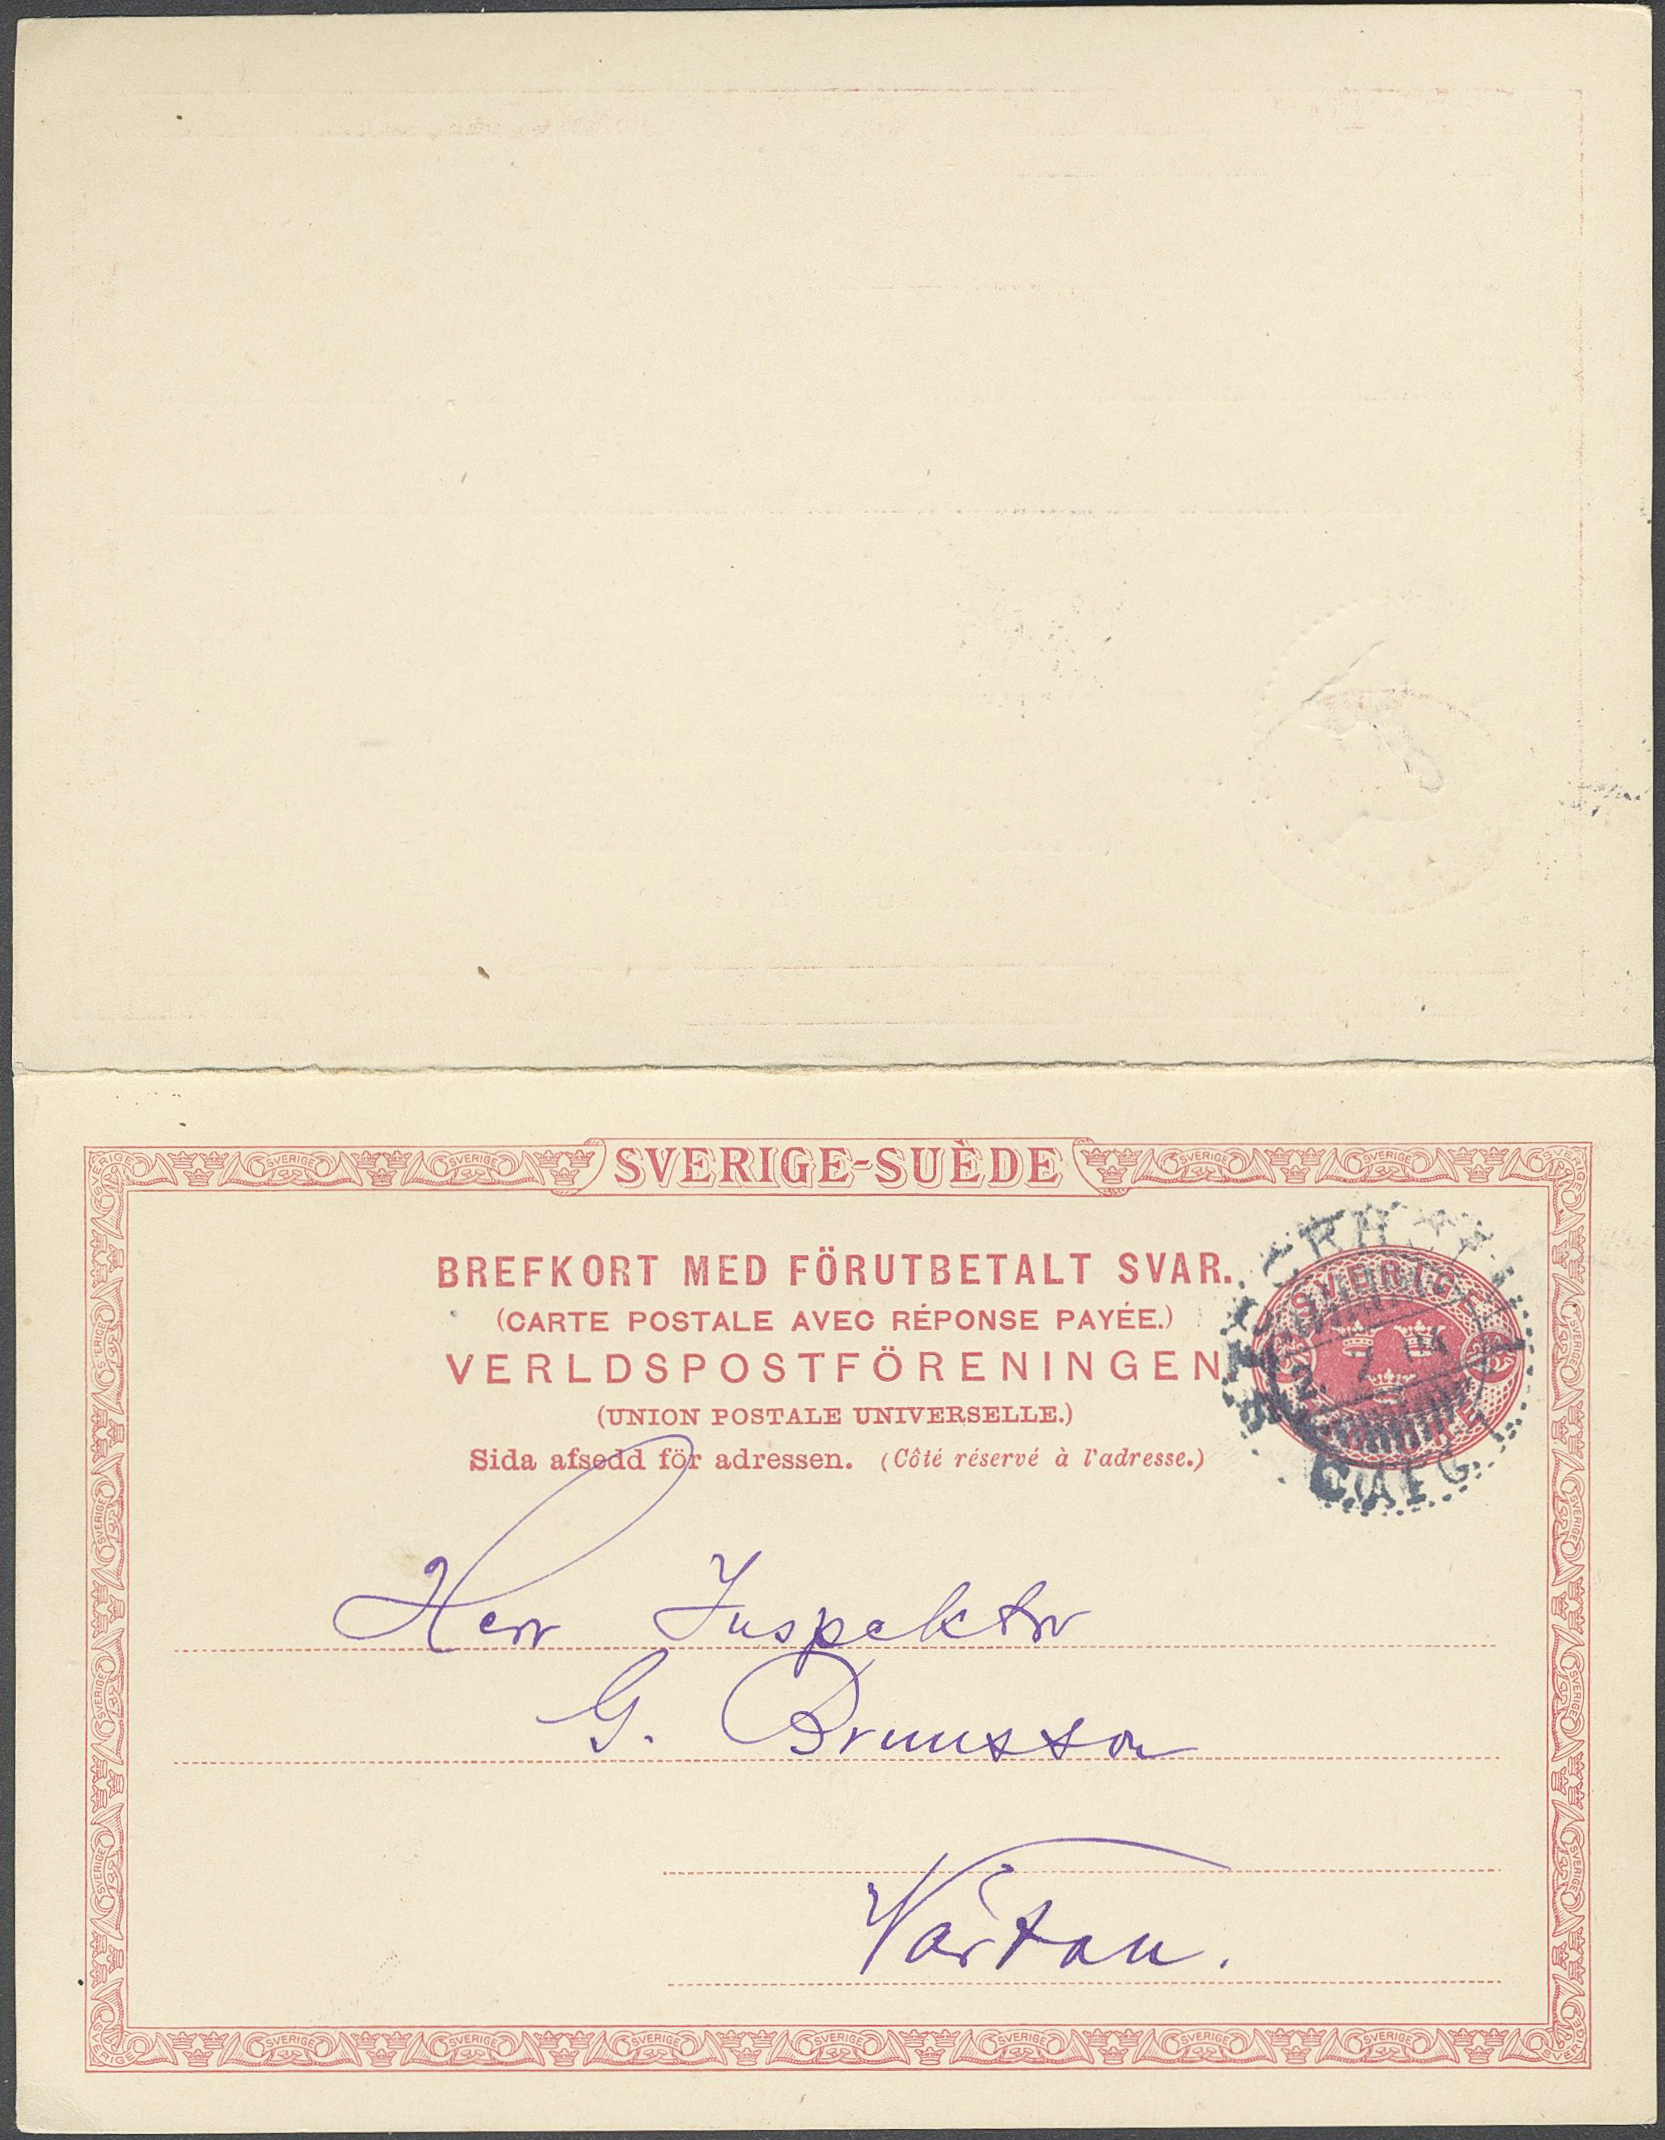 SVERIGE-SUÈDE
BREFKORT MED FÖRUTBETALT SVAR.
(CARTE POSTALE AVEC RÉPONSE PAYÉE.)
VERLDSPOSTFÖRENINGEN
(UNION POSTALE UNIVERSELLE.)
Sida afsedd för adressen. (Côté réservé à l'adresse.)
SVERIGE
Herr Inspektor
G. Brunsson
Värtan.